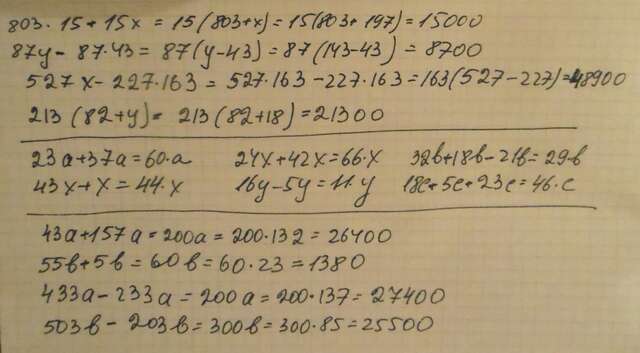 803·15+15x = 15(803+x)=15(803+197)=15000
87y-87·43=87(y-43)=87(143-43)=8700
527x-227·163=527·163-227·163=163(527-227)=48900
213(82+y)=213(82+18)=21300
23a+37a=60·a 24x+42x=66·x 32b+18b-21b=29·b
43x+x=44·x 16y-5y=11·y 18c+5c+23c=46·c
43a+157a=200a=200·132=26400
55b+5b=60b=60·23=1380
433a-233a=200a=200·137=27400
503b-203b=300b=300·85=25500